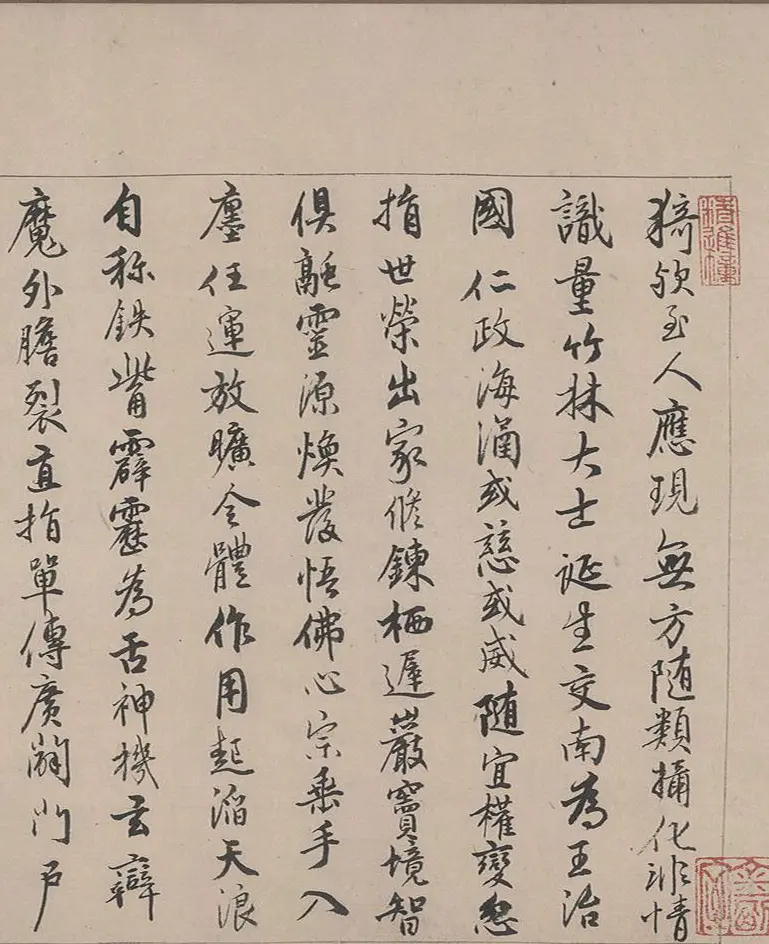 精進幢
猗欤至人應現無方随類攝化非情
識量竹林大士誕生交南為王治
國仁政海涵或慈或威随宜權變忽
指世榮出家修鍊栖遲巖竇境智
俱融靈源煥發悟佛心宗垂手入
廛任運放曠全體作用起滔天浪
自称鉄觜霹靂為舌神機玄辯
魔外膽裂直指單傳廣闢門户